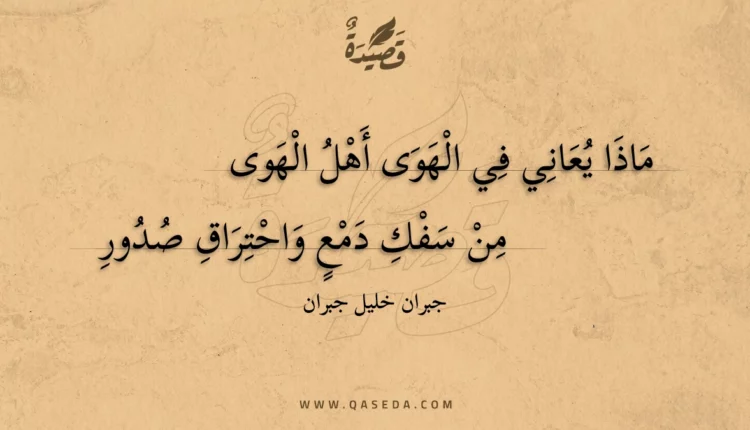 قَصِيْدَةٌ
مَاذَا يُعَانِي فِي الْهَوَى أَهْلُ الْهَوى
مِنْ سَفْكِ دَمْعٍ وَاحْتِرَاقِ صُدُورِ
جبران خليل جبران
WWW.QASEDA.COM